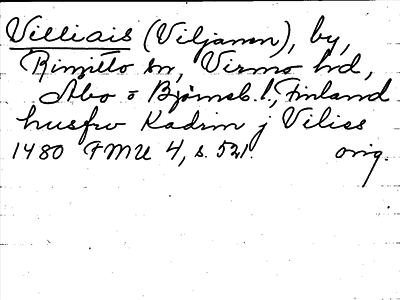 Villiais (Viljanen), by,
Rimito sn, Virmo hd,
Åbo o Björneb. l., Finland
husfro Kadrin j Viliss
1480 FMU 4, s. 521. orig.